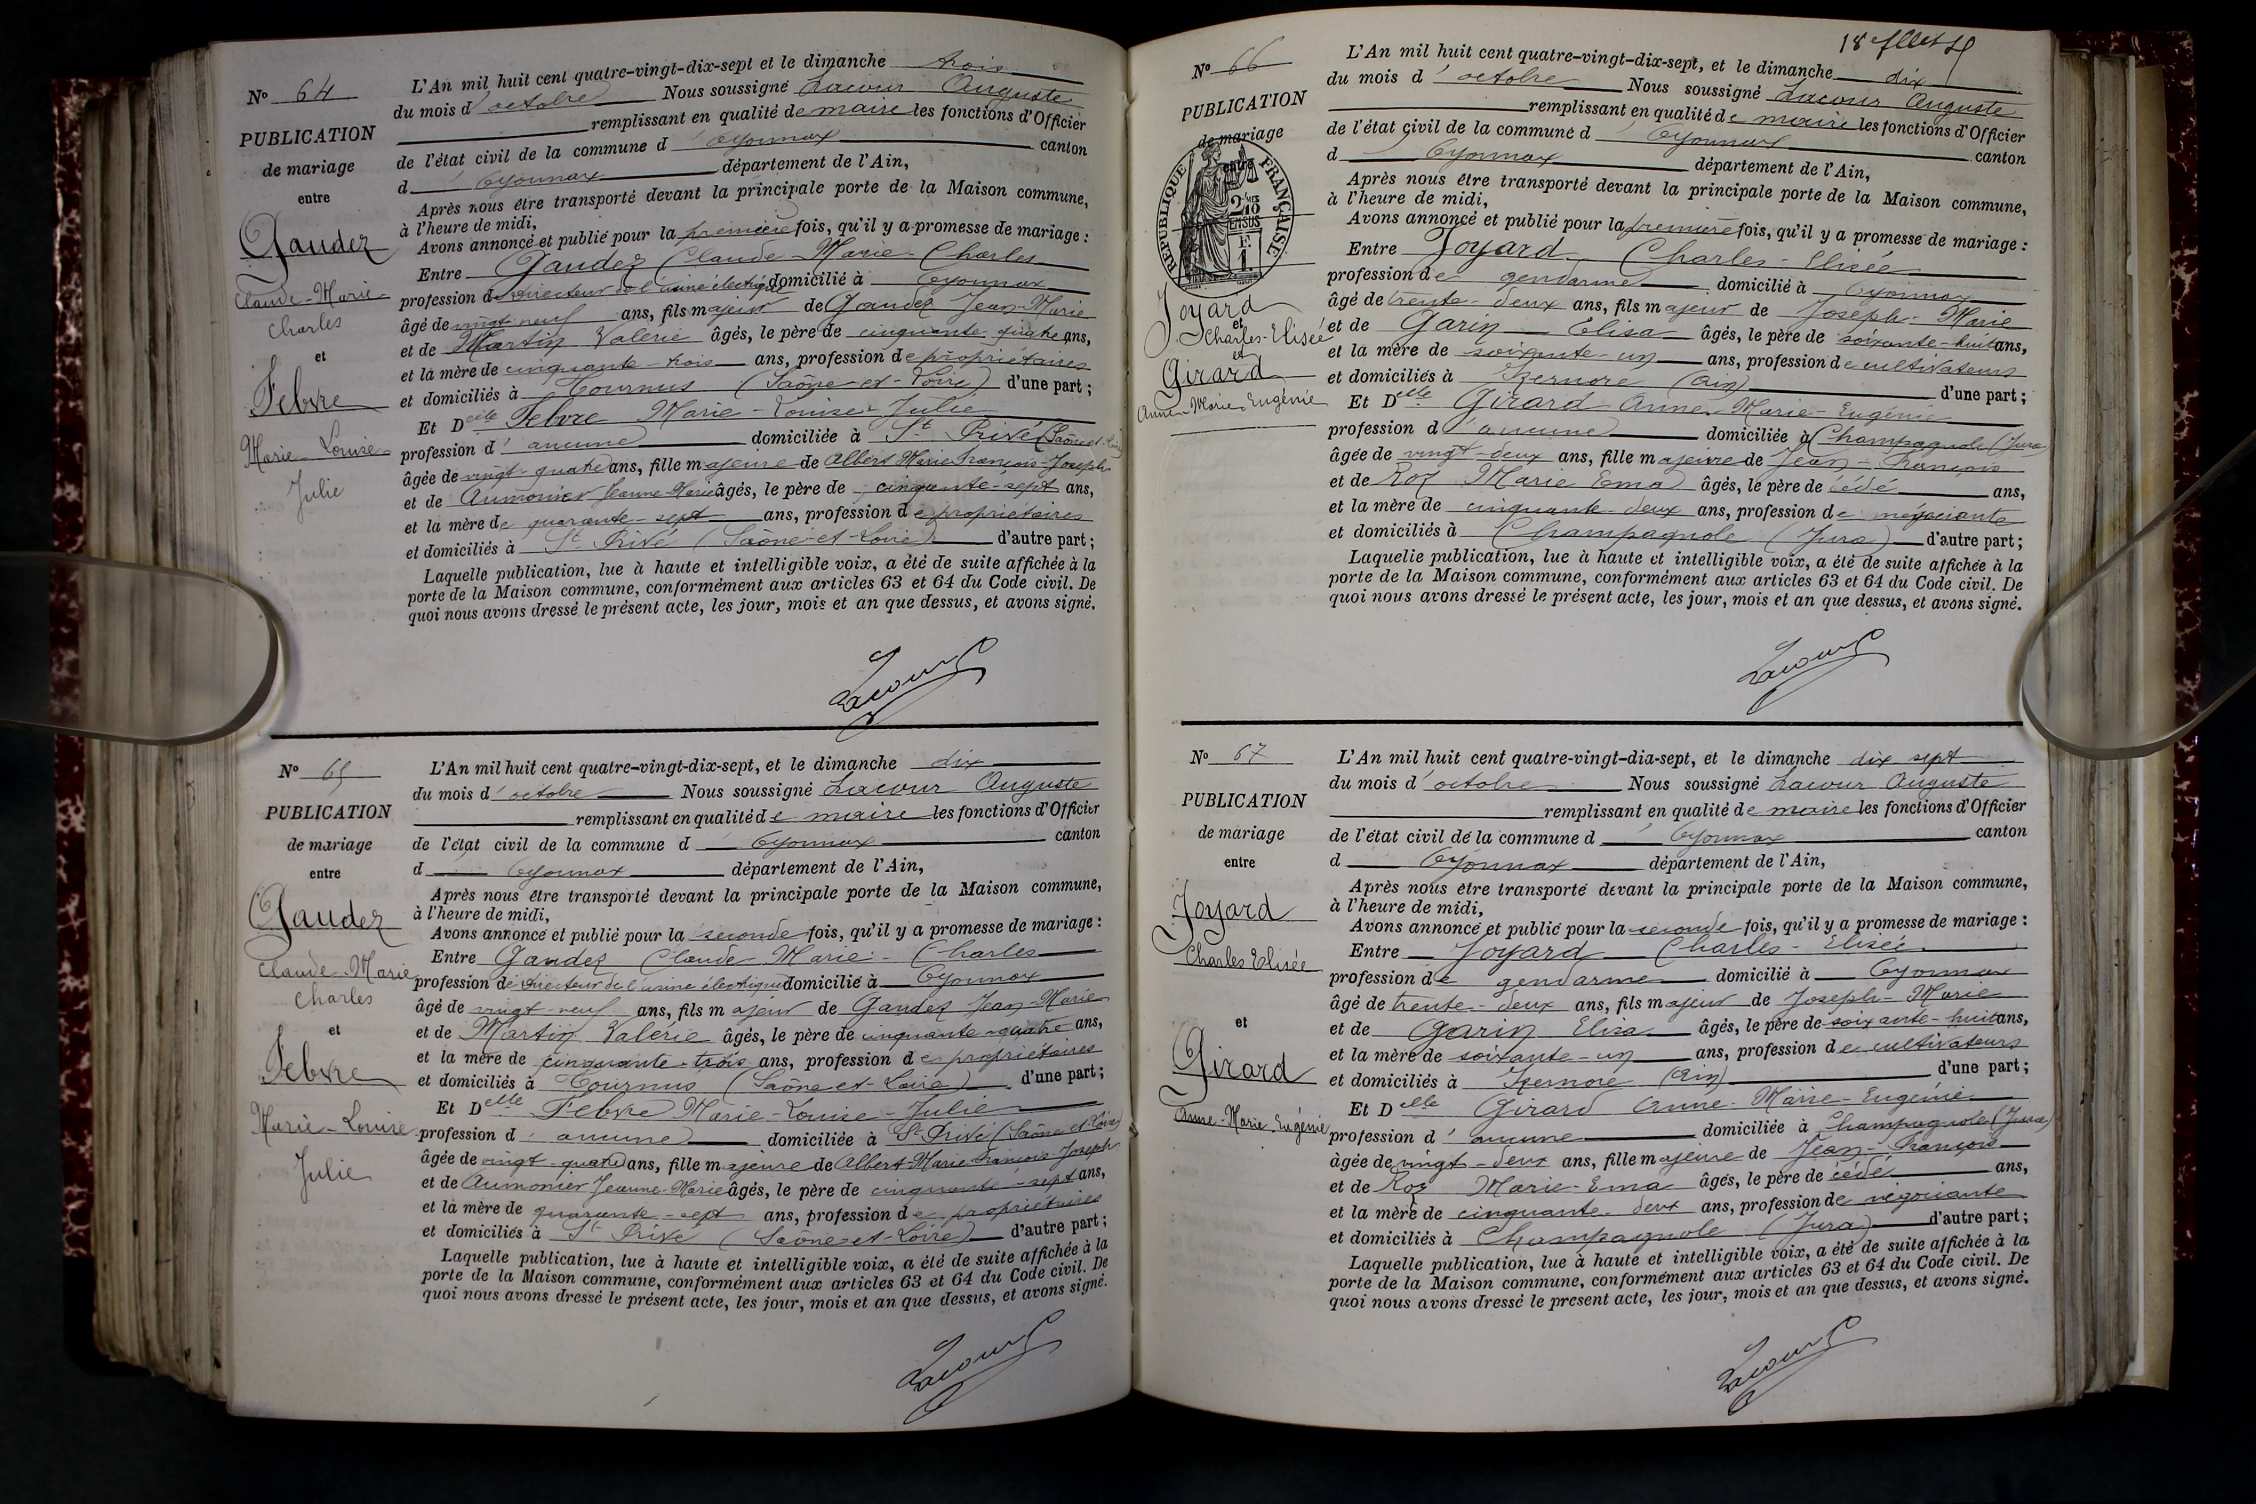 N° 64
PUBLICATION
de mariage
entre
Gaudez
Claude-Marie-
Charles
et
Febvre
Marie-Louise-
Julie
L'An mil huit cent quatre-vingt-dix-sept et le dimanche trois
du mois d'octobre Nous soussigné Lacour Auguste
remplissant en qualité de maire les fonctions d'Officier
de l'état civil de la commune d'Oyonnax canton
d'Oyonnax département de l'Ain,
Après nous être transporté devant la principale porte de la Maison commune,
à l'heure de midi,
Avons annoncé et publié pour la première fois, qu'il y a promesse de mariage :
Entre Gaudez Claude-Marie-Charles
profession de directeur de l'usine électrique domicilié à Oyonnax
âgé de vingt-neuf ans, fils majeur de Gaudez Jean-Marie
et de Martin Valérie âgés, le père de cinquante-quatre ans,
et la mère de cinquante-trois ans, profession de propriétaires
et domiciliés à Tournus (Saône-et-Loire) d'une part ;
Et Delle Febvre Marie-Louise-Julie
profession d'aucune domiciliée à St Privé (Saône et Loire)
âgée de vingt-quatre ans, fille majeure de Albert Marie François-Joseph
et de Aumonier Jeanne-Marie âgés, le père de cinquante-sept ans,
et la mère de quarante-sept ans, profession de propriétaires
et domiciliés à St Privé (Saône-et-Loire) d'autre part ;
Laquelle publication, lue à haute et intelligible voix, a été de suite affichée à la
porte de la Maison commune, conformément aux articles 63 et 64 du Code civil. De
quoi nous avons dressé le présent acte, les jour, mois et an que dessus, et avons signé.
Lacour
N° 65
PUBLICATION
de mariage
entre
Gaudez
Claude-Marie
Charles
et
Febvre
Marie-Louise
Julie
L'An mil huit cent quatre-vingt-dix-sept, et le dimanche dix
du mois d'octobre Nous soussigné Lacour Auguste
remplissant en qualité de maire les fonctions d'Officier
de l'état civil de la commune d'Oyonnax canton
d'Oyonnax département de l'Ain,
Après nous être transporté devant la principale porte de la Maison commune,
à l'heure de midi,
Avons annoncé et publié pour la seconde fois, qu'il y a promesse de mariage :
Entre Gaudez Claude Marie-Charles
profession de directeur de l'usine électrique domicilié à Oyonnax
âgé de vingt-neuf ans, fils majeur de Gaudez Jean-Marie
et de Martin Valérie âgés, le père de cinquante-quatre ans,
et la mère de cinquante-trois ans, profession de propriétaires
et domiciliés à Tournus (Saône-et-Loire) d'une part ;
Et Delle Febvre Marie-Louise-Julie
profession d'aucune domiciliée à St Privé (Saône et Loire)
âgée de vingt-quatre ans, fille majeure de Albert Marie François-Joseph
et de Aumonier Jeanne-Marie âgés, le père de cinquante-sept ans,
et la mère de quarante-sept ans, profession de propriétaires
et domiciliés à St Privé (Saône-et-Loire) d'autre part ;
Laquelle publication, lue à haute et intelligible voix, a été de suite affichée à la
porte de la Maison commune, conformément aux articles 63 et 64 du Code civil. De
quoi nous avons dressé le présent acte, les jour, mois et an que dessus, et avons signé.
Lacour
18e fllet
N° 66
PUBLICATION
de mariage
entre
RÉPUBLIQUE FRANÇAISE
2/10
EN SUS
Joyard
et
Charles-Elisée
et
Girard
Anne-Marie-Eugénie
L'An mil huit cent quatre-vingt-dix-sept, et le dimanche dix
du mois d'octobre Nous soussigné Lacour Auguste
remplissant en qualité de maire les fonctions d'Officier
de l'état civil de la commune d'Oyonnax canton
d'Oyonnax département de l'Ain,
Après nous être transporté devant la principale porte de la Maison commune,
à l'heure de midi,
Avons annoncé et publié pour la première fois, qu'il y a promesse de mariage :
Entre Joyard Charles-Elisée
profession de gendarme domicilié à Oyonnax
âgé de trente-deux ans, fils majeur de Joseph-Marie
et de Garin Elisa âgés, le père de soixante-huit ans,
et la mère de soixante-un ans, profession de cultivateurs
et domiciliés à Izernore (Ain) d'une part ;
Et Delle Girard Anne-Marie-Eugénie
profession d'aucune domiciliée à Champagnole (Jura)
âgée de vingt-deux ans, fille majeure de Jean-François
et de Roz Marie Ema âgés, le père décédé ans,
et la mère de cinquante-deux ans, profession de négociante
et domiciliés à Champagnole (Jura) d'autre part ;
Laquelle publication, lue à haute et intelligible voix, a été de suite affichée à la
porte de la Maison commune, conformément aux articles 63 et 64 du Code civil. De
quoi nous avons dressé le présent acte, les jour, mois et an que dessus, et avons signé.
Lacour
N° 67
PUBLICATION
de mariage
entre
Joyard
Charles Elisée
et
Girard
Anne-Marie-Eugénie
L'An mil huit cent quatre-vingt-dix-sept, et le dimanche dix sept
du mois d'octobre Nous soussigné Lacour Auguste
remplissant en qualité de maire les fonctions d'Officier
de l'état civil de la commune d'Oyonnax canton
d'Oyonnax département de l'Ain,
Après nous être transporté devant la principale porte de la Maison commune,
à l'heure de midi,
Avons annoncé et publié pour la seconde fois, qu'il y a promesse de mariage :
Entre Joyard Charles-Elisée
profession de gendarme domicilié à Oyonnax
âgé de trente-deux ans, fils majeur de Joseph-Marie
et de Garin Elisa âgés, le père de soixante-huit ans,
et la mère de soixante-un ans, profession de cultivateurs
et domiciliés à Izernore (Ain) d'une part ;
Et Delle Girard Anne-Marie-Eugénie
profession d'aucune domiciliée à Champagnole (Jura)
âgée de vingt-deux ans, fille majeure de Jean-François
et de Roz Marie-Ema âgés, le père décédé ans,
et la mère de cinquante-deux ans, profession de négociante
et domiciliés à Champagnole (Jura) d'autre part ;
Laquelle publication, lue à haute et intelligible voix, a été de suite affichée à la
porte de la Maison commune, conformément aux articles 63 et 64 du Code civil. De
quoi nous avons dressé le présent acte, les jour, mois et an que dessus, et avons signé.
Lacour